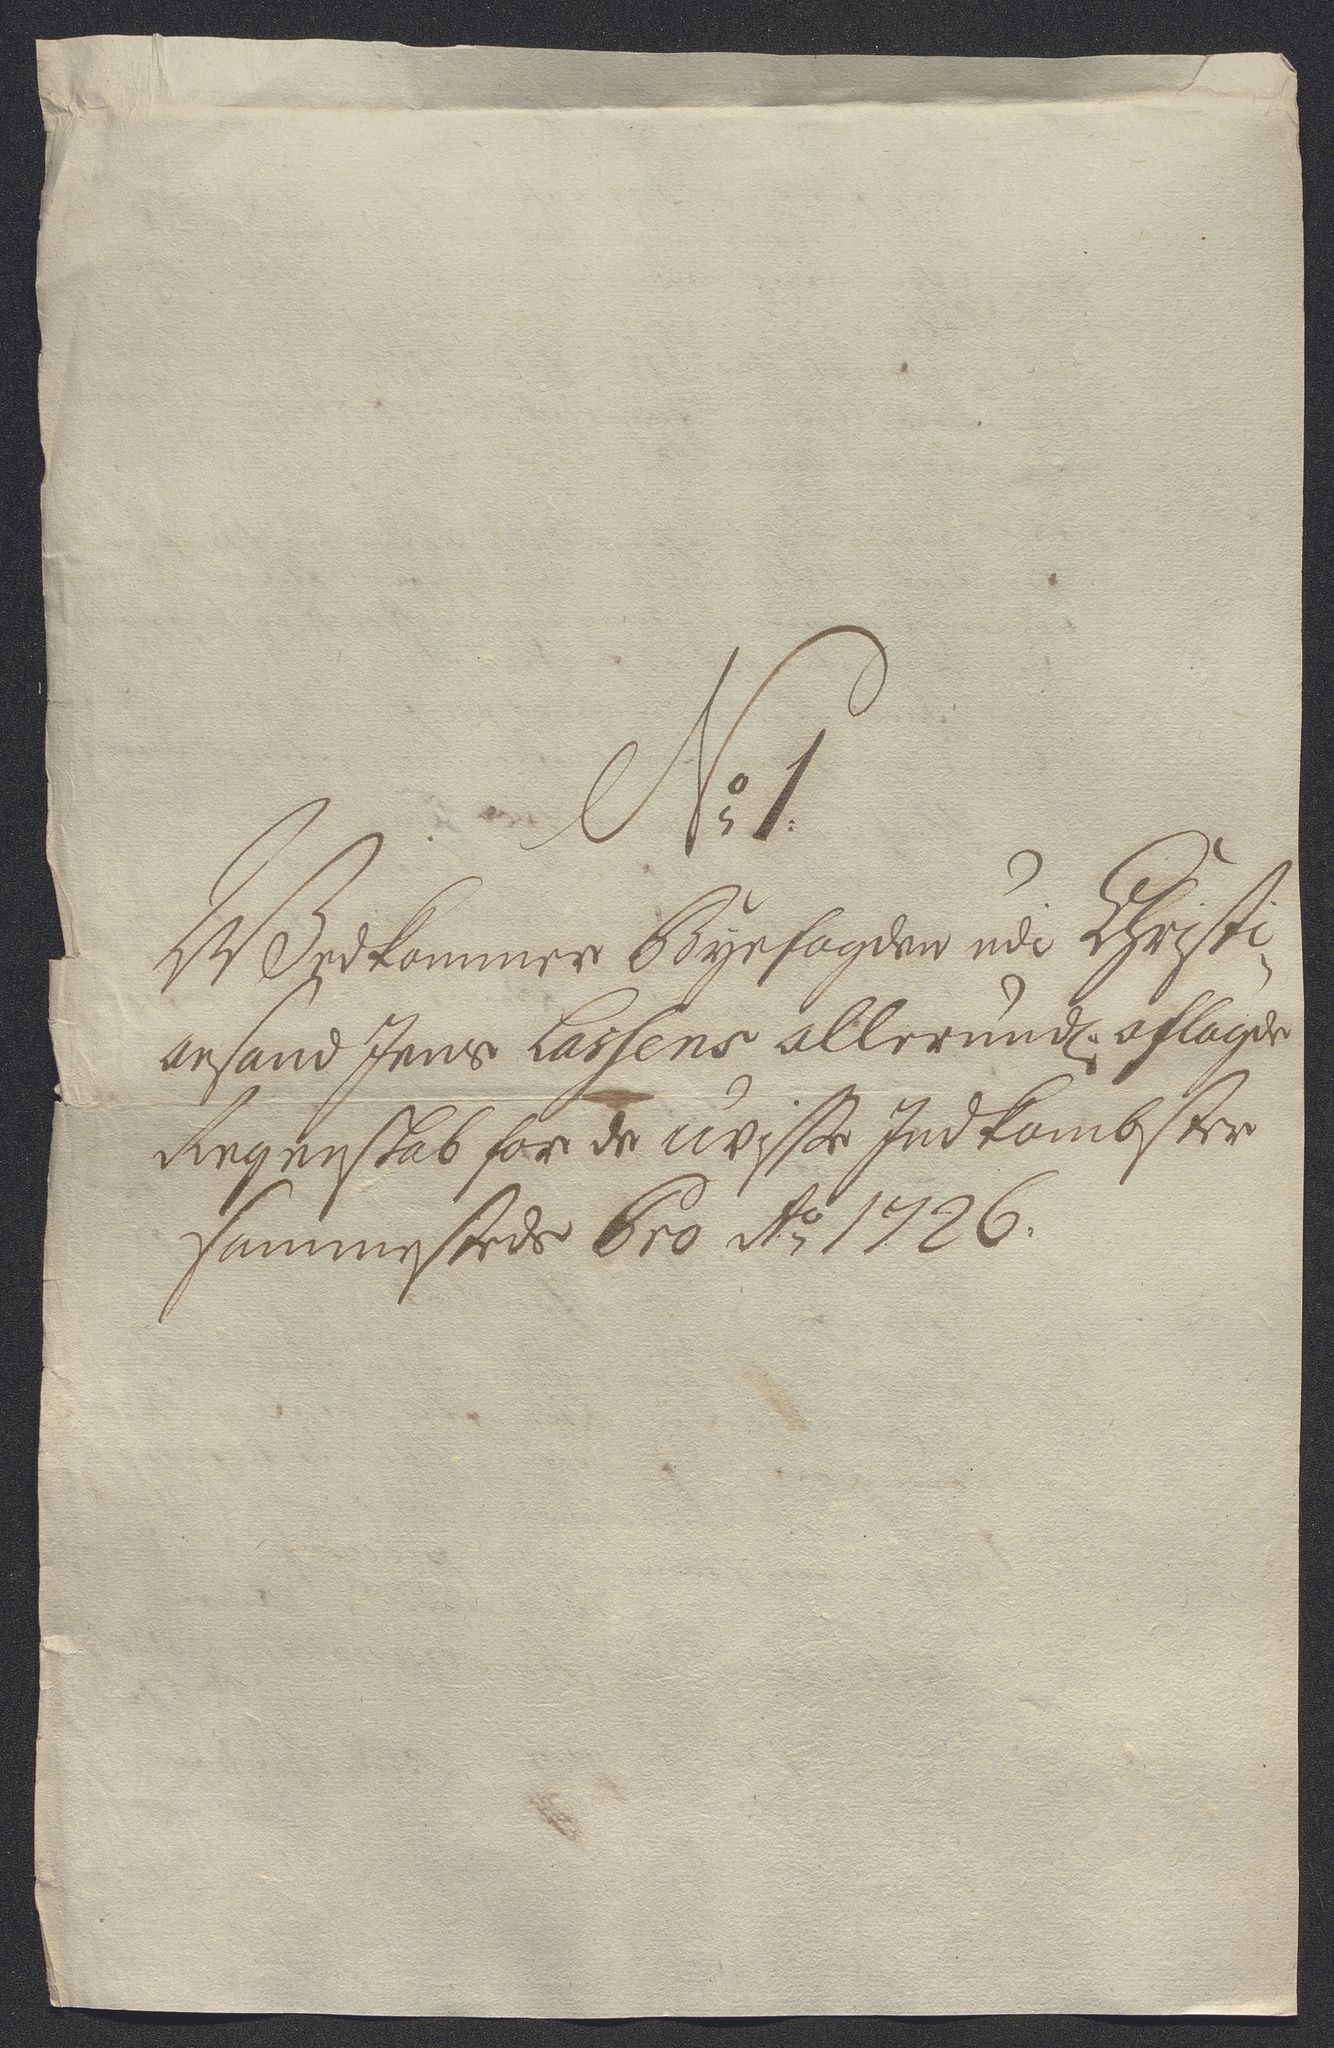 No 1.
Wedkommer Byefogden udi Christi-
ansand Jens Lassens allerund: aflagde
Regenskab for de uvisse Jndkombster
sammesteds Pro Ao 1726.